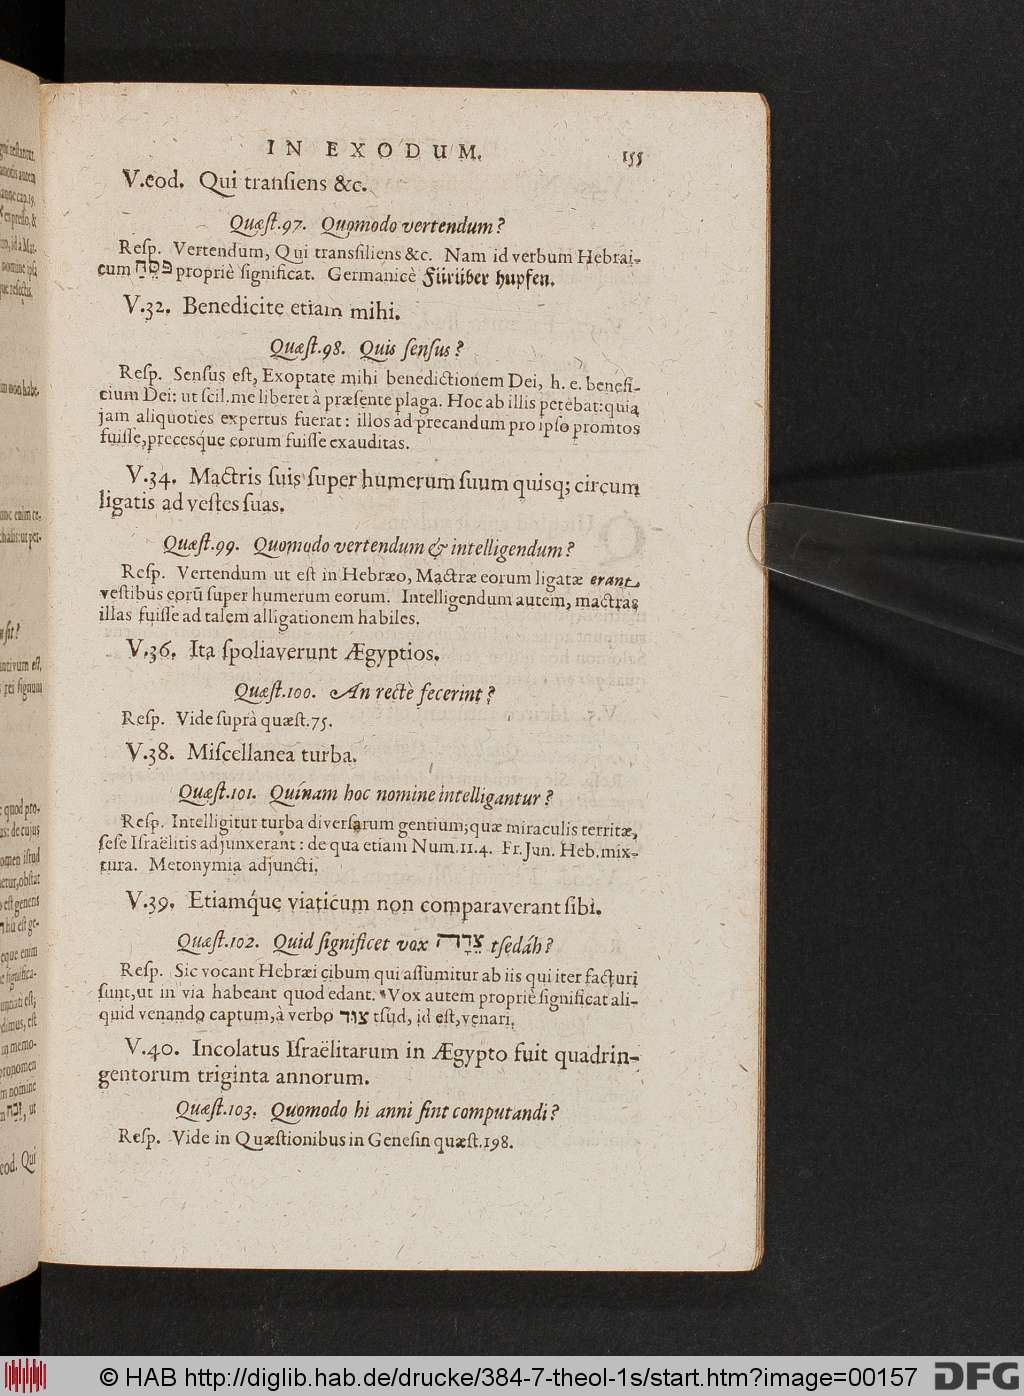 IN EXODUM. 155
V.eod. Qui transiens &c.
Quæſt.97. Quomodo vertendum?
Reſp. Vertendum, Qui transſiliens &c. Nam id verbum Hebrai-
cum פָּסַח propriè ſignificat. Germanicè Fürüber hupfen.
V.32. Benedicite etiam mihi.
Quæſt.98. Quis ſenſus?
Reſp. Senſus eſt, Exoptate mihi benedictionem Dei, h. e. benefi-
cium Dei: ut ſcil. me liberet à præſente plaga. Hoc ab illis petebat: quia
jam aliquoties expertus fuerat: illos ad precandum pro ipſo promtos
fuiſſe, precesq́ue eorum fuiſſe exauditas.
V.34. Mactris ſuis ſuper humerum ſuum quisq; circum
ligatis ad veſtes ſuas.
Quæſt.99. Quomodo vertendum & intelligendum?
Reſp. Vertendum ut eſt in Hebræo, Mactræ eorum ligatæ erant
veſtibus eorū ſuper humerum eorum. Intelligendum autem, mactras
illas fuiſſe ad talem alligationem habiles.
V.36. Ita ſpoliaverunt Ægyptios.
Quæſt.100. An rectè fecerint?
Reſp. Vide ſuprà quæſt.75.
V.38. Miſcellanea turba.
Quæſt.101. Quínam hoc nomine intelligantur?
Reſp. Intelligitur turba diverſarum gentium; quæ miraculis territæ,
ſeſe Iſraëlitis adjunxerant: de qua etiam Num.11.4. Fr. Jun. Heb. mix-
tura. Metonymia adjuncti.
V.39. Etiamq́ue viaticum non comparaverant ſibi.
Quæſt.102. Quid ſignificet vox צֵדָה tſedáh?
Reſp. Sic vocant Hebræi cibum qui aſſumitur ab iis qui iter facturi
ſunt, ut in via habeant quod edant. Vox autem propriè ſignificat ali-
quid venando captum, à verbo צוּד tſud, id eſt, venari.
V.40. Incolatus Iſraëlitarum in Ægypto fuit quadrin-
gentorum triginta annorum.
Quæſt.103. Quomodo hi anni ſint computandi?
Reſp. Vide in Quæſtionibus in Geneſin quæſt.198.
© HAB http://diglib.hab.de/drucke/384-7-theol-1s/start.htm?image=00157
DFG